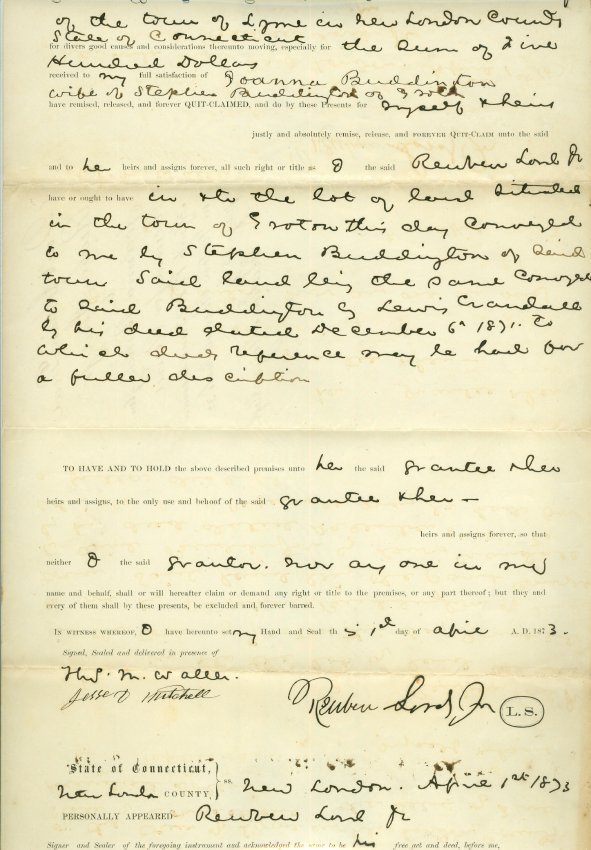 of the town of Lyme in New London County
State of Connecticut
for divers good causes and considerations thereunto moving, especially for the sum of Five
Hundred Dollars
received to my full satisfaction of Joanna Buddington
wife of Stephen Buddington of Groton
have remised, released, and forever QUIT-CLAIMED, and do by these Presents for myself & heirs
justly and absolutely remise, release, and FOREVER QUIT-CLAIM unto the said
and to he heirs and assigns forever, all such right or title as I the said Reuben Lord Jr
have or ought to have in & to the lot of land situated
in the town of Groton this day conveyed
to me by Stephen Buddington of said
town Said land being the same conveyed
to said Buddington by Lewis Crandall
by his deed dated December 6th 1871. to
which deeds reference may be had for
a fuller description
TO HAVE AND TO HOLD the above described premises unto her the said grantee & her
heirs and assigns, to the only use and behoof of the said grantee & her —
heirs and assigns forever, so that
neither I the said grantor. nor any one in my
name and behalf, shall or will hereafter claim or demand any right or title to the premises, or any part thereof; but they and
every of them shall by these presents, be excluded and forever barred.
IN WITNESS WHEREOF, I have hereunto set my Hand and Seal this 1st day of April A. D. 1873.
Signed, Sealed and delivered in presence of
Thos. M. Waller.
Jesse D Mitchell
Reuben Lord Jr L. S.
State of Connecticut,
New London COUNTY, ss. New London. April 1st 1873
PERSONALLY APPEARED Reuben Lord Jr
Signer and Sealer of the foregoing instrument and acknowledged the same to be his free act and deed, before me,